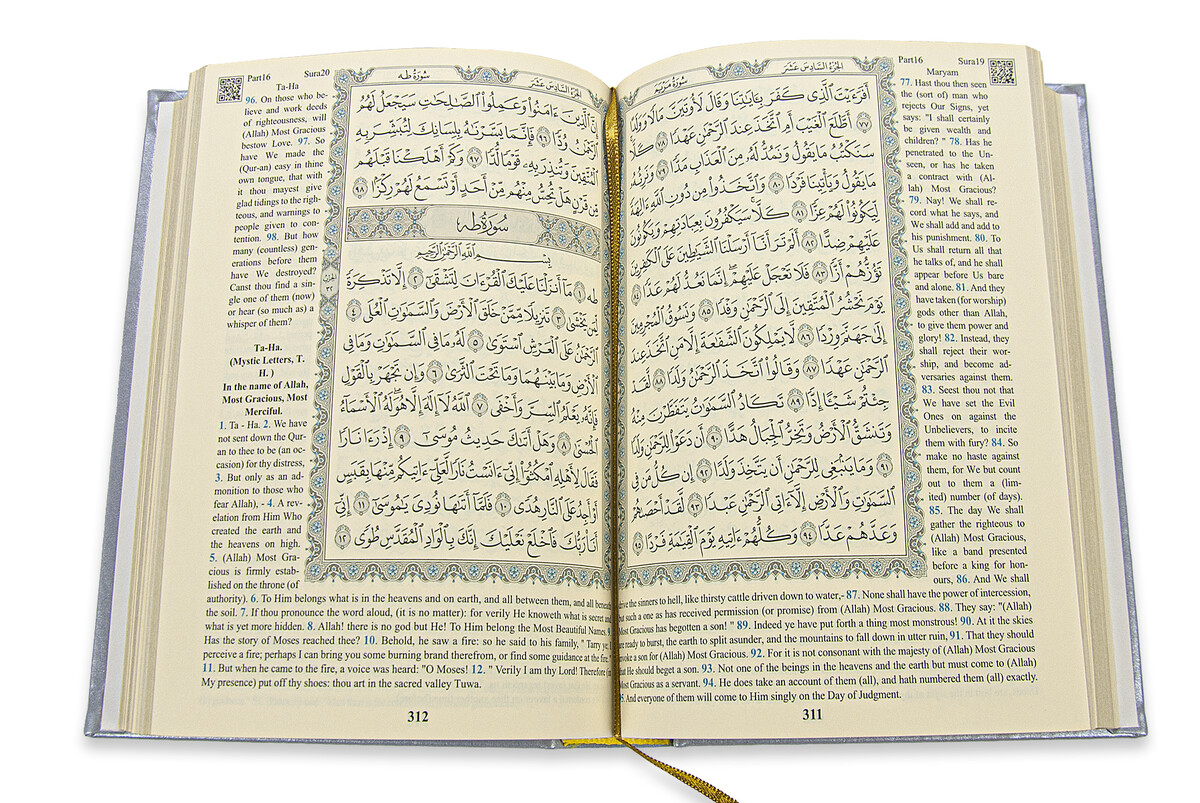 الجزء السادس عشر
سورة مريم
أَفَرَءَيْتَ ٱلَّذِى كَفَرَ بِـَٔايَٰتِنَا وَقَالَ لَأُوتَيَنَّ مَالًا وَوَلَدًا
٧٧ أَطَّلَعَ ٱلْغَيْبَ أَمِ ٱتَّخَذَ عِندَ ٱلرَّحْمَٰنِ عَهْدًا ٧٨ كَلَّا
سَنَكْتُبُ مَا يَقُولُ وَنَمُدُّ لَهُۥ مِنَ ٱلْعَذَابِ مَدًّا ٧٩ وَنَرِثُهُۥ
مَا يَقُولُ وَيَأْتِينَا فَرْدًا ٨٠ وَٱتَّخَذُوا۟ مِن دُونِ ٱللَّهِ ءَالِهَةً
لِّيَكُونُوا۟ لَهُمْ عِزًّا ٨١ كَلَّا سَيَكْفُرُونَ بِعِبَادَتِهِمْ وَيَكُونُونَ
عَلَيْهِمْ ضِدًّا ٨٢ أَلَمْ تَرَ أَنَّآ أَرْسَلْنَا ٱلشَّيَٰطِينَ عَلَى ٱلْكَٰفِرِينَ
تَؤُزُّهُمْ أَزًّا ٨٣ فَلَا تَعْجَلْ عَلَيْهِمْ إِنَّمَا نَعُدُّ لَهُمْ عَدًّا ٨٤
يَوْمَ نَحْشُرُ ٱلْمُتَّقِينَ إِلَى ٱلرَّحْمَٰنِ وَفْدًا ٨٥ وَنَسُوقُ ٱلْمُجْرِمِينَ
إِلَىٰ جَهَنَّمَ وِرْدًا ٨٦ لَّا يَمْلِكُونَ ٱلشَّفَٰعَةَ إِلَّا مَنِ ٱتَّخَذَ عِندَ
ٱلرَّحْمَٰنِ عَهْدًا ٨٧ وَقَالُوا۟ ٱتَّخَذَ ٱلرَّحْمَٰنُ وَلَدًا ٨٨ لَّقَدْ
جِئْتُمْ شَيْـًٔا إِدًّا ٨٩ تَكَادُ ٱلسَّمَٰوَٰتُ يَتَفَطَّرْنَ مِنْهُ
وَتَنشَقُّ ٱلْأَرْضُ وَتَخِرُّ ٱلْجِبَالُ هَدًّا ٩٠ أَن دَعَوْا۟ لِلرَّحْمَٰنِ وَلَدًا
٩١ وَمَا يَنۢبَغِى لِلرَّحْمَٰنِ أَن يَتَّخِذَ وَلَدًا ٩٢ إِن كُلُّ مَن فِى
ٱلسَّمَٰوَٰتِ وَٱلْأَرْضِ إِلَّآ ءَاتِى ٱلرَّحْمَٰنِ عَبْدًا ٩٣ لَّقَدْ أَحْصَىٰهُمْ
وَعَدَّهُمْ عَدًّا ٩٤ وَكُلُّهُمْ ءَاتِيهِ يَوْمَ ٱلْقِيَٰمَةِ فَرْدًا ٩٥
Part16 Sura19
Maryam
77. Hast thou then seen
the (sort of) man who
rejects Our Signs, yet
says: "I shall certainly
be given wealth and
children? " 78. Has he
penetrated to the Un-
seen, or has he taken
a contract with (Al-
lah) Most Gracious?
79. Nay! We shall re-
cord what he says, and
We shall add and add to
his punishment. 80. To
Us shall return all that
he talks of, and he shall
appear before Us bare
and alone. 81. And they
have taken (for worship)
gods other than Allah,
to give them power and
glory! 82. Instead, they
shall reject their wor-
ship, and become ad-
versaries against them.
83. Seest thou not that
We have set the Evil
Ones on against the
Unbelievers, to incite
them with fury? 84. So
make no haste against
them, for We but count
out to them a (lim-
ited) number (of days).
85. The day We shall
gather the righteous to
(Allah) Most Gracious,
like a band presented
before a king for hon-
ours, 86. And We shall
drive the sinners to hell, like thirsty cattle driven down to water,- 87. None shall have the power of intercession,
but such a one as has received permission (or promise) from (Allah) Most Gracious. 88. They say: "(Allah)
Most Gracious has begotten a son! " 89. Indeed ye have put forth a thing most monstrous! 90. At it the skies
are ready to burst, the earth to split asunder, and the mountains to fall down in utter ruin, 91. That they should
invoke a son for (Allah) Most Gracious. 92. For it is not consonant with the majesty of (Allah) Most Gracious
that He should beget a son. 93. Not one of the beings in the heavens and the earth but must come to (Allah)
Most Gracious as a servant. 94. He does take an account of them (all), and hath numbered them (all) exactly.
And everyone of them will come to Him singly on the Day of Judgment.
311
الجزء السادس عشر
سورة طه
إِنَّ ٱلَّذِينَ ءَامَنُوا۟ وَعَمِلُوا۟ ٱلصَّٰلِحَٰتِ سَيَجْعَلُ لَهُمُ
ٱلرَّحْمَٰنُ وُدًّا ٩٦ فَإِنَّمَا يَسَّرْنَٰهُ بِلِسَانِكَ لِتُبَشِّرَ بِهِ
ٱلْمُتَّقِينَ وَتُنذِرَ بِهِۦ قَوْمًا لُّدًّا ٩٧ وَكَمْ أَهْلَكْنَا قَبْلَهُم
مِّن قَرْنٍ هَلْ تُحِسُّ مِنْهُم مِّنْ أَحَدٍ أَوْ تَسْمَعُ لَهُمْ رِكْزًۢا ٩٨
سُورَةُ طه
بِسْمِ ٱللَّهِ ٱلرَّحْمَٰنِ ٱلرَّحِيمِ
طه ١ مَآ أَنزَلْنَا عَلَيْكَ ٱلْقُرْءَانَ لِتَشْقَىٰٓ ٢ إِلَّا تَذْكِرَةً
لِّمَن يَخْشَىٰ ٣ تَنزِيلًا مِّمَّنْ خَلَقَ ٱلْأَرْضَ وَٱلسَّمَٰوَٰتِ ٱلْعُلَى ٤
ٱلرَّحْمَٰنُ عَلَى ٱلْعَرْشِ ٱسْتَوَىٰ ٥ لَهُۥ مَا فِى ٱلسَّمَٰوَٰتِ وَمَا فِى
ٱلْأَرْضِ وَمَا بَيْنَهُمَا وَمَا تَحْتَ ٱلثَّرَىٰ ٦ وَإِن تَجْهَرْ بِٱلْقَوْلِ
فَإِنَّهُۥ يَعْلَمُ ٱلسِّرَّ وَأَخْفَى ٧ ٱللَّهُ لَآ إِلَٰهَ إِلَّا هُوَ لَهُ ٱلْأَسْمَآءُ
ٱلْحُسْنَىٰ ٨ وَهَلْ أَتَىٰكَ حَدِيثُ مُوسَىٰٓ ٩ إِذْ رَءَا نَارًا
فَقَالَ لِأَهْلِهِ ٱمْكُثُوٓا۟ إِنِّىٓ ءَانَسْتُ نَارًا لَّعَلِّىٓ ءَاتِيكُم مِّنْهَا بِقَبَسٍ
أَوْ أَجِدُ عَلَى ٱلنَّارِ هُدًى ١٠ فَلَمَّآ أَتَىٰهَا نُودِىَ يَٰمُوسَىٰٓ ١١ إِنِّىٓ
أَنَا۠ رَبُّكَ فَٱخْلَعْ نَعْلَيْكَ إِنَّكَ بِٱلْوَادِ ٱلْمُقَدَّسِ طُوًى ١٢
Part16 Sura20
Ta-Ha
96. On those who be-
lieve and work deeds
of righteousness, will
(Allah) Most Gracious
bestow Love. 97. So
have We made the
(Qur-an) easy in thine
own tongue, that with
it thou mayest give
glad tidings to the righ-
teous, and warnings to
people given to con-
tention. 98. But how
many (countless) gen-
erations before them
have We destroyed?
Canst thou find a sin-
gle one of them (now)
or hear (so much as) a
whisper of them?
Ta-Ha.
(Mystic Letters, T.
H. )
In the name of Allah,
Most Gracious, Most
Merciful.
1. Ta - Ha. 2. We have
not sent down the Qur-
an to thee to be (an oc-
casion) for thy distress,
3. But only as an ad-
monition to those who
fear Allah), - 4. A rev-
elation from Him Who
created the earth and
the heavens on high.
5. (Allah) Most Gra-
cious is firmly estab-
lished on the throne (of
authority). 6. To Him belongs what is in the heavens and on earth, and all between them, and all beneath
the soil. 7. If thou pronounce the word aloud, (it is no matter): for verily He knoweth what is secret and
what is yet more hidden. 8. Allah! there is no god but He! To Him belong the Most Beautiful Names.
Has the story of Moses reached thee? 10. Behold, he saw a fire: so he said to his family, " Tarry ye; I
perceive a fire; perhaps I can bring you some burning brand therefrom, or find some guidance at the fire.
11. But when he came to the fire, a voice was heard: "O Moses! 12. " Verily I am thy Lord! Therefore (in
My presence) put off thy shoes: thou art in the sacred valley Tuwa.
312